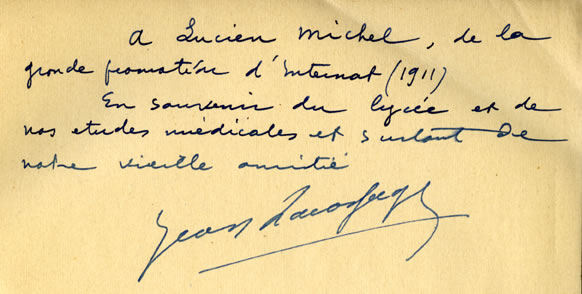 A Lucien Michel, de la
grande promotion d'Internat (1911)
En souvenir du lycée et de
nos etudes médicales et surtout de
notre vieille amitié
Jean Lacassagne